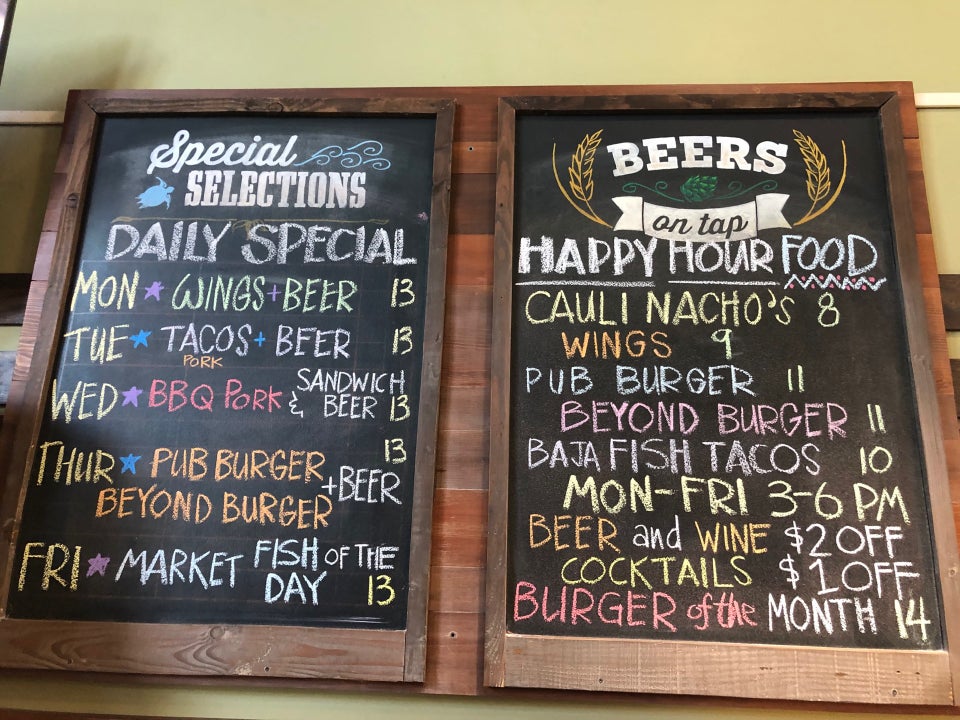 Special
SELECTIONS
DAILY SPECIAL
MON ★ WINGS + BEER 13
TUE ★ TACOS + BEER 13
PORK
WED ★ BBQ PORK & SANDWICH BEER 13
THUR ★ PUB BURGER 13
BEYOND BURGER + BEER
FRI ★ MARKET FISH OF THE
DAY 13
BEERS
on tap
HAPPY HOUR FOOD
CAULI NACHO'S 8
WINGS 9
PUB BURGER 11
BEYOND BURGER 11
BAJA FISH TACOS 10
MON-FRI 3-6 PM
BEER and WINE $2 OFF
COCKTAILS $1 OFF
BURGER of the MONTH 14